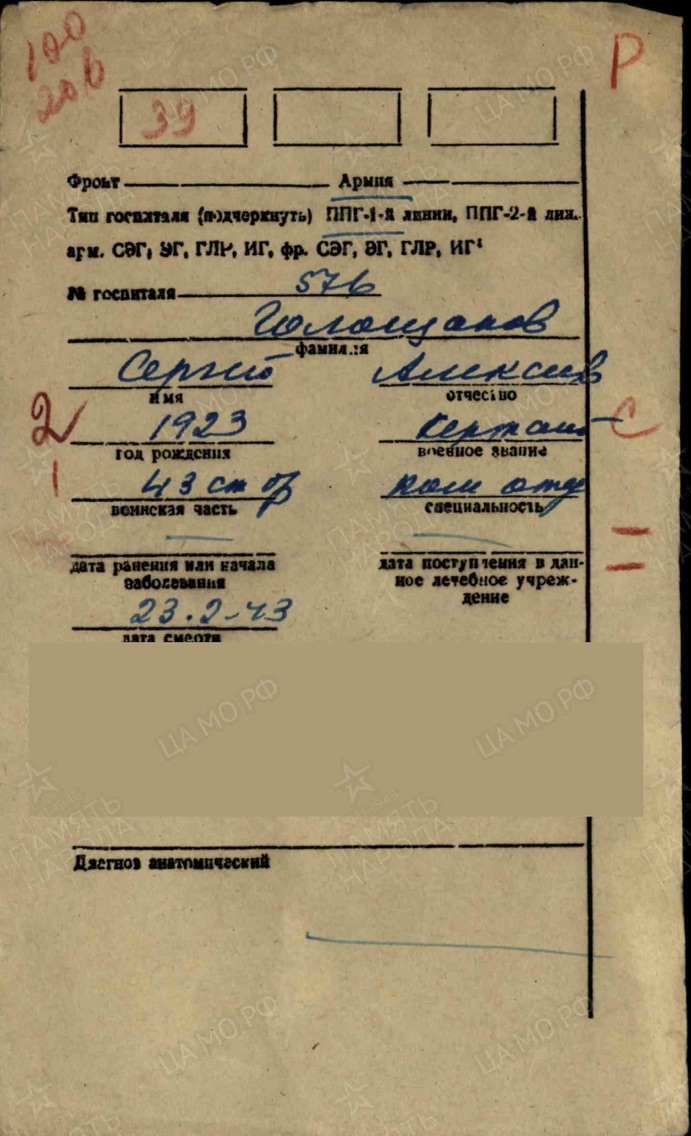 100
206
Р
39
Фронт Армия
Тип госпиталя (подчеркнуть) ППГ-1-й линии, ППГ-2-й лин.
арм. СЭГ, ЭГ, ГЛР, ИГ, фр. СЭГ, ЭГ, ГЛР, ИГ
№ госпиталя 576
Голощапов
фамилия
Сергей Алексеев
имя отчество
2 1923 Сержант С
год рождения военное звание
1 43 ст бр ком отд
воинская часть специальность
дата ранения или начала дата поступления в дан-
заболевания ное лечебное учреж-
дение
23.2-43
дата смерти
Диагноз анатомический
ЦАМО РФ
ПАМЯТЬ
НАРОДА